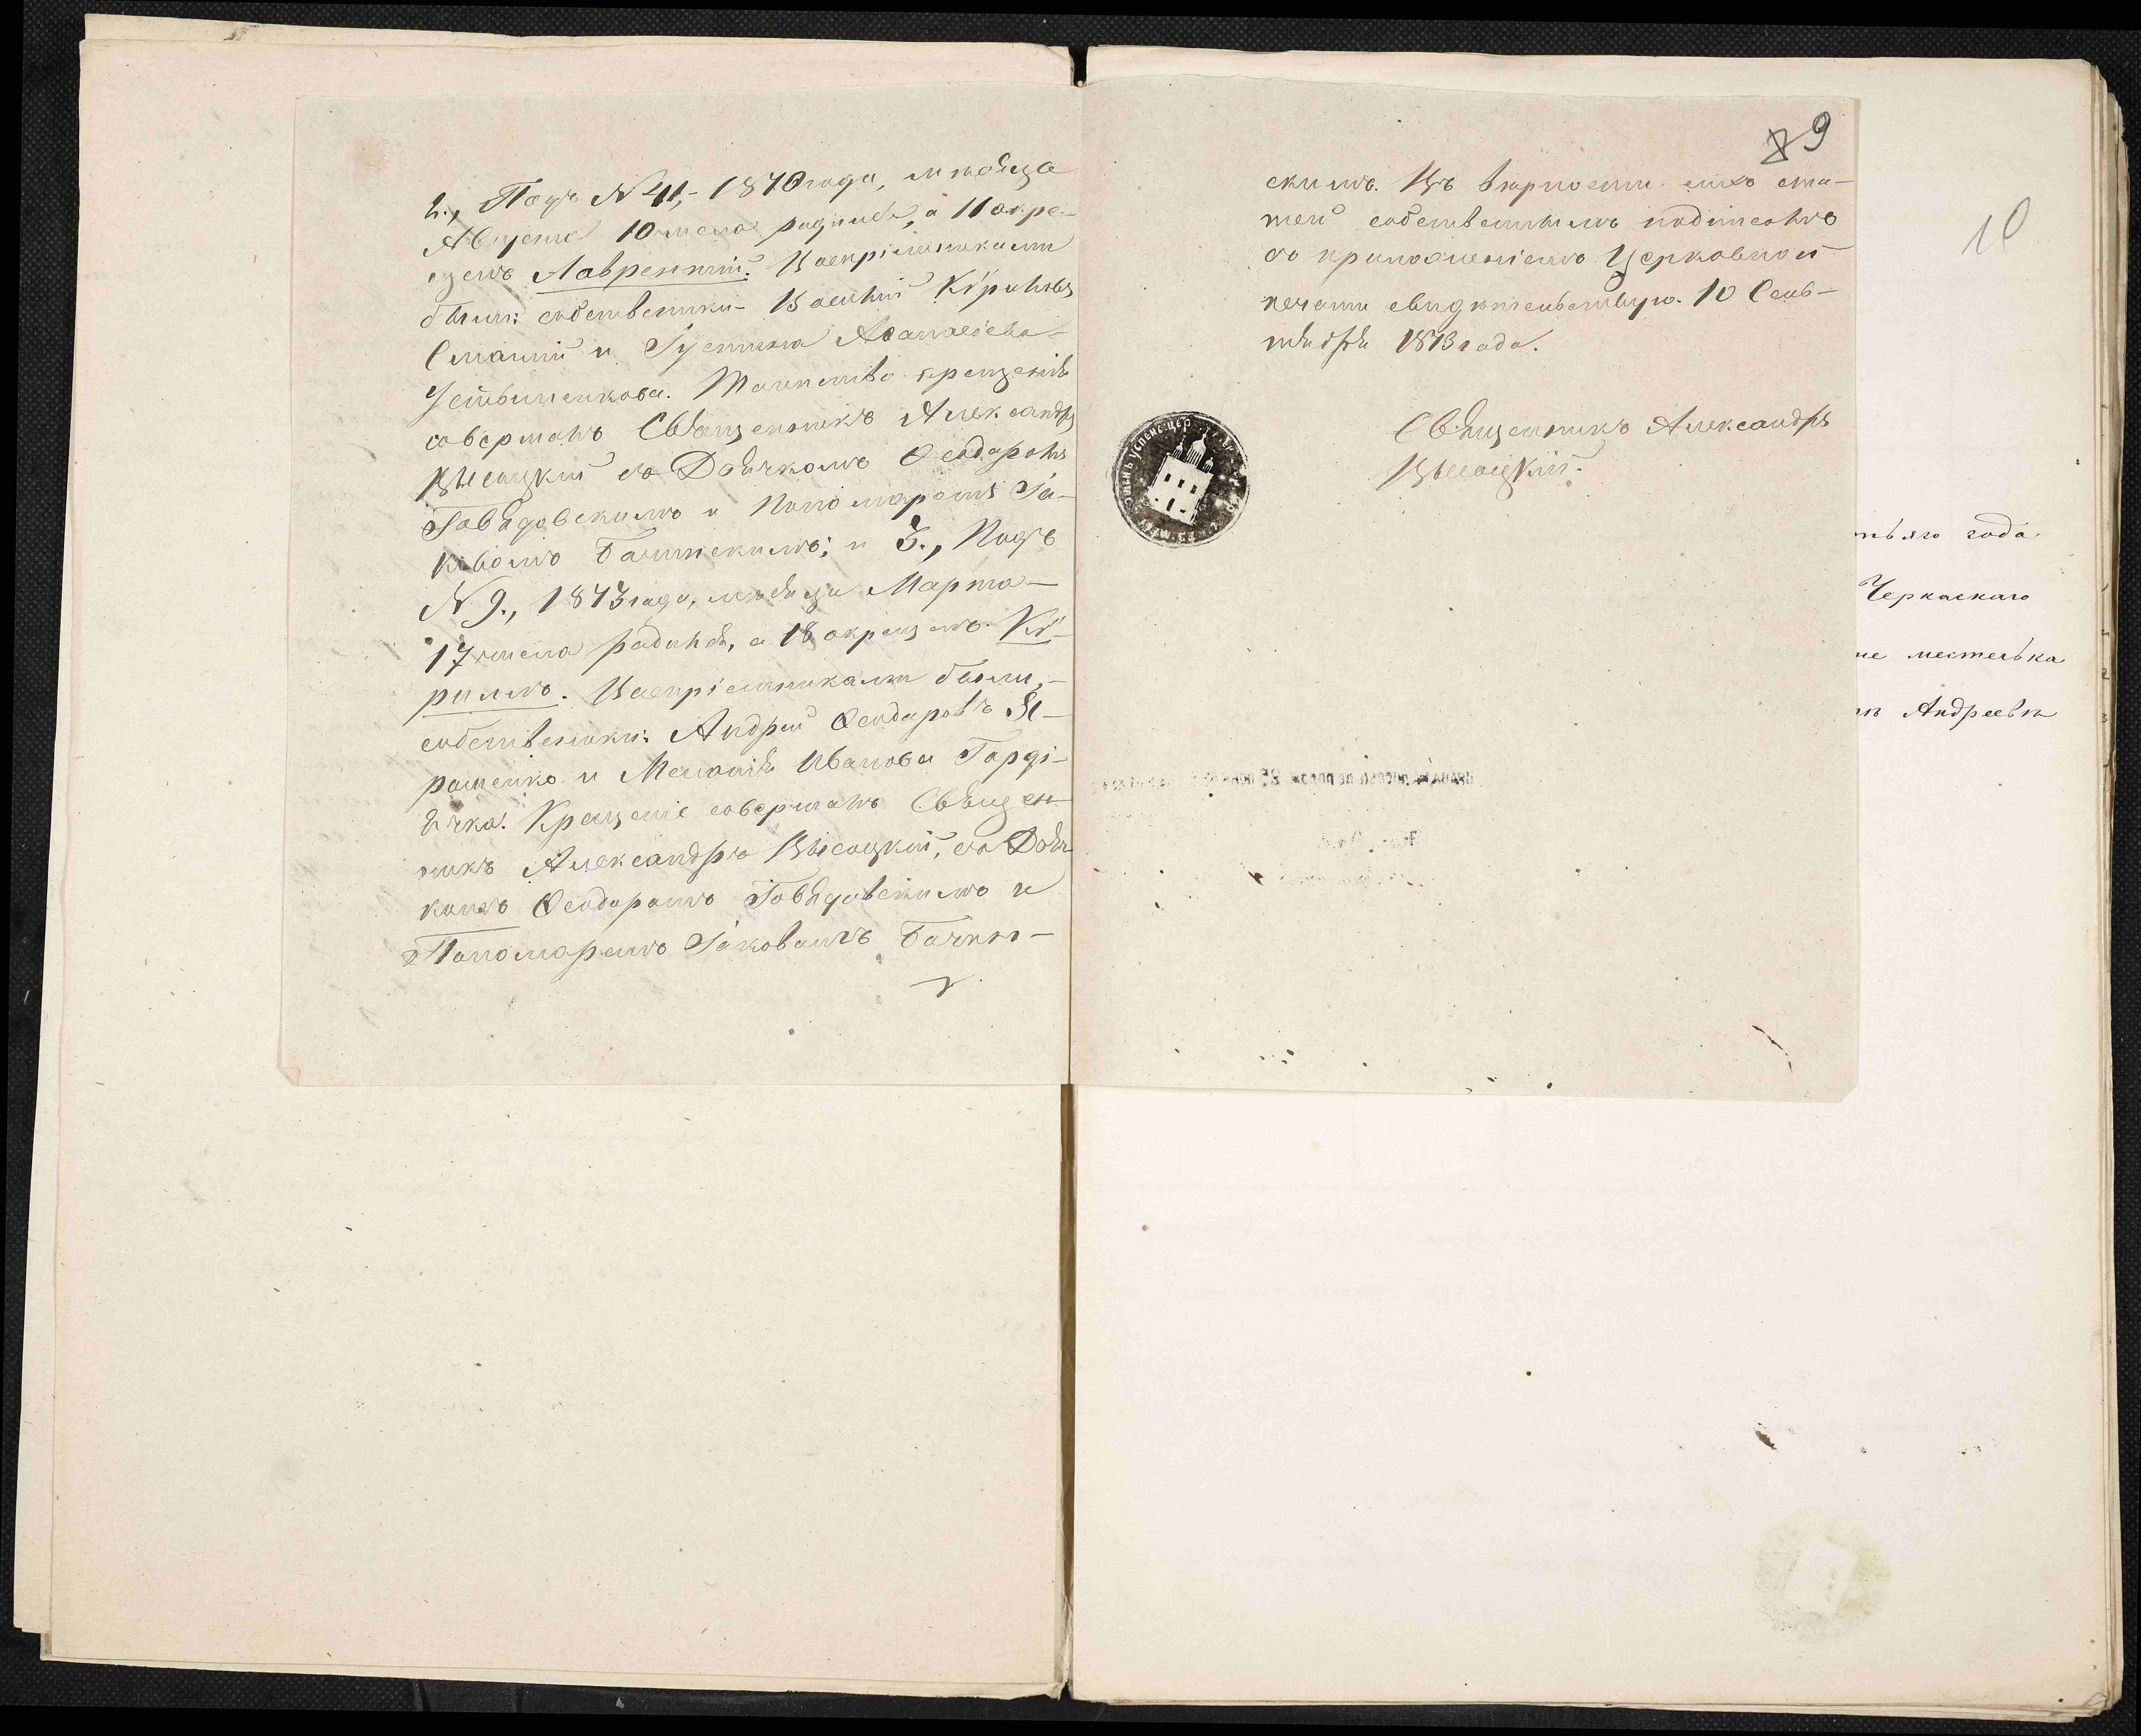 2., Подъ № 41,- 1870 года, мѣсяца
Августа 10 числа родился, а 11 окре-
щенъ Лаврентій. Воспріемниками
были: собственники- Василий Кѵриловъ
и Іустина Аѳанасіева
Устьименкова. Таинство крещенія
совершалъ Священникъ Александръ
Высоцкий съ Дьячкомъ Ѳеодоромъ
Говядовскимъ и Пономаремъ Іа-
ковомъ Бачинскимъ; и 3., Подъ
№ 9., 1873 года, мѣсяца Марта-
17 числа родился, а 18 окрещенъ Кѵ-
риллъ. Воспріемниками были,-
собственники: Андрей Ѳеодоровъ
и Меланія Иванова Горді-
Крещеніе совершалъ Священ-
никъ Александръ Высоцкий, съ Дьяч-
комъ Ѳеодоромъ Говядовскимъ и
Пономаремъ Іаковомъ Бачин-
9
скимъ. Въ вѣрности сихъ ста-
тей собственнымъ подписомъ
съ приложеніемъ Церковной
печати свидѣтельствую. 10 Сен-
тября 1873 года.
Священникъ Александръ
Высоцкій.
10
года
Черкаскаго
местечька
Андреевѣ